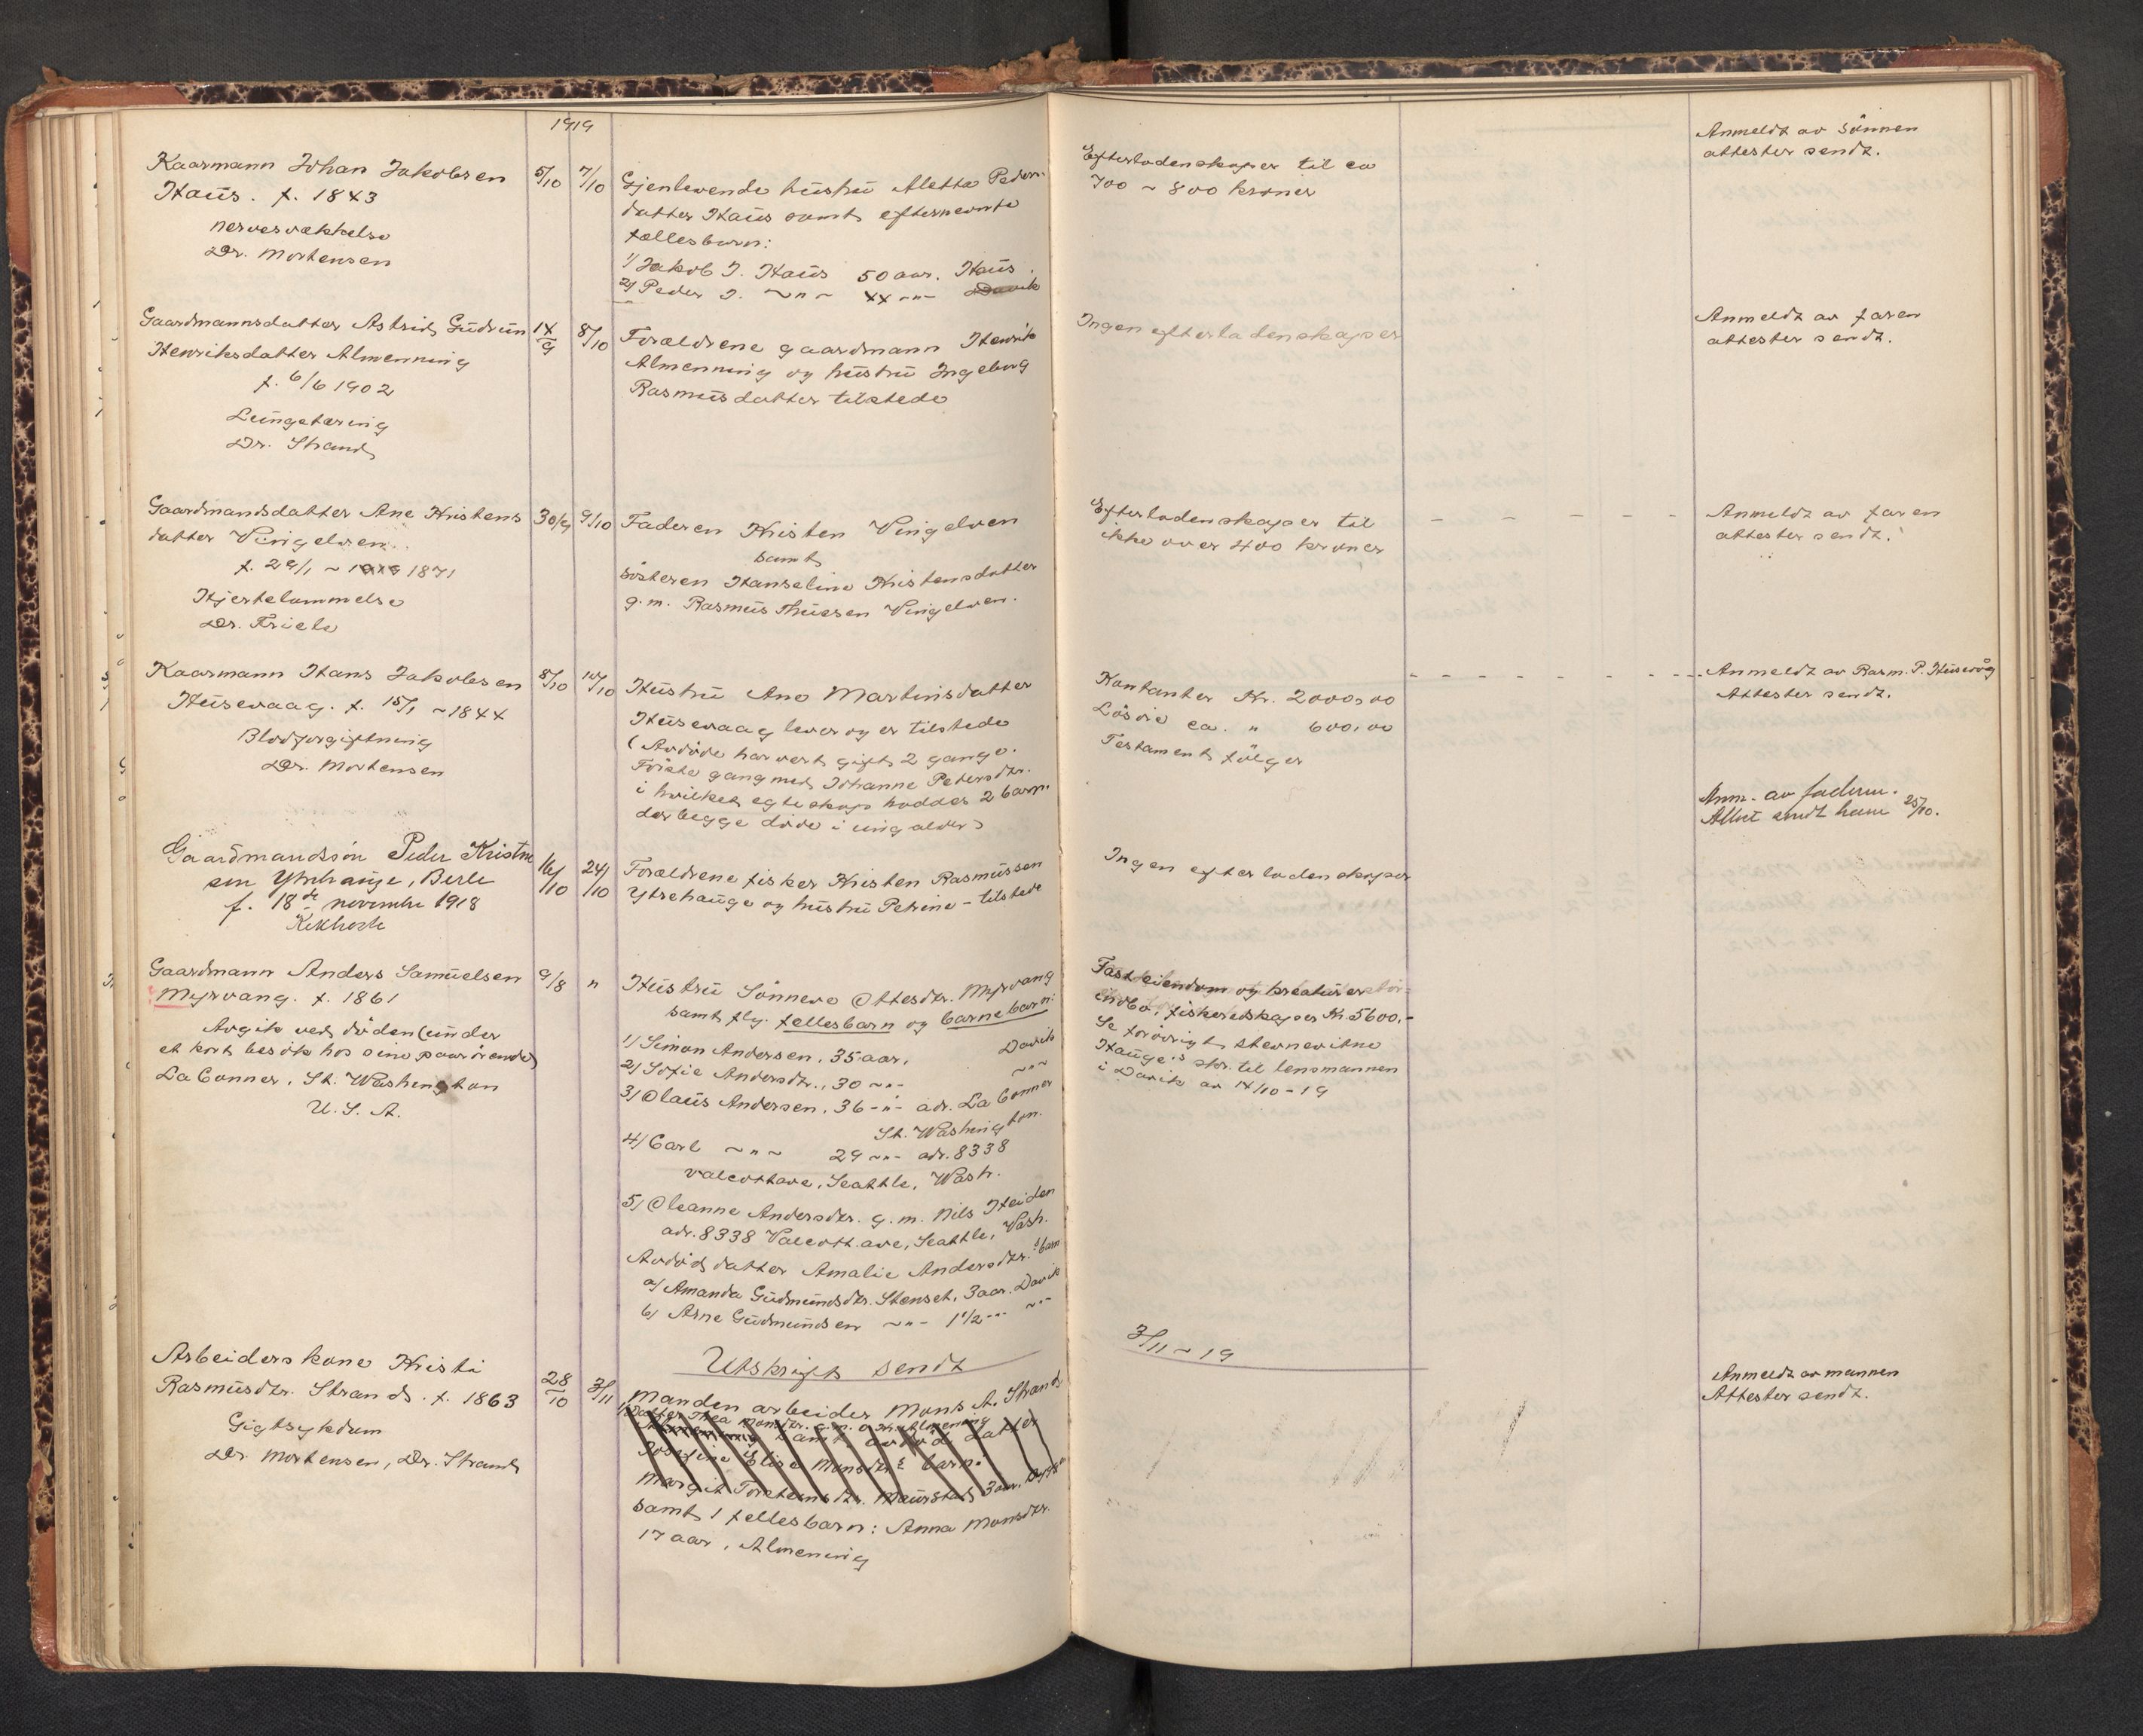 1919
Kaarmann Johan Jakobsen
Haus. f. 1843
nervesvækkelse
Dr. Mortensen
5/10
7/10
Gjenlevende hustru Aletta Peders-
datter Haus samt efternevnte
fællesbarn:
1) Jakob J. Haus 50 aar. Haus.
2) Peder J. ~ " ~ 44 - " - Davik
Efterladenskaper til ca
700 ~ 800 kroner
Anmeldt av sönnen
attester sendt.
Gaardmannsdatter Astrid Gudrun
Henriksdatter Almenning
f. 6/6 1902
Lungetæring
Dr. Strand
14/9
8/10
Forældrene gaardmann Henrik
Almenning og hustru Ingeborg
Rasmusdatter tilstede
Ingen efterladenskaper
Anmeldt av faren
attester sendt.
Gaardmandsdatter Ane Kristens
datter Vingelven.
f. 29/1 ~ 1871
Hjertelammelse
Dr. Friele
30/9
9/10
Faderen Kristen Vingelven
samt
sösteren Hanseline Kristensdatter
g. m. Rasmus Thuesen Vingelven.
Efterladenskaper til
ikke over 400 kroner
Anmeldt av faren
attester sendt.
Kaarmann Hans Jakobsen
Husevaag. f. 15/1 ~ 1844
Blodforgiftning
Dr. Mortensen
8/10
10/10
Hustru Ane Martinsdatter
Husevaag lever og er tilstede
(Avdöde har vert gift 2 gange.
Förste gang med Johanne Pedersdtr.
i hvilket egteskap hadde 2 barn.
der begge döde i ung alder)
Kontanter Kr. 2000,00
Lösöre ca. " 600,00
Testament fölger
Anmeldt av Rasm. P. Husevåg
Attester sendt.
Gaardmandsön Peder Kristen
sen Ytrehauge, Berle
f. 18de november 1918
Kikhoste
16/10
24/10
Forældrene fisker Kristen Rasmussen
Ytrehauge og hustru Petrine - tilstede
Ingen efterladenskaper
Anm. av faderen.
Attest sendt ham 25/10.
Gaardmann Anders Samuelsen
Myrvang. f. 1861
Avgik ved döden (under
et kort besök hos sine paarörende)
La Conner, St. Washington
U. S. A.
9/8
"
Hustru Sönneve Ottesdtr. Myrvang
samt flg. fellesbarn og barnebarn:
1) Simon Andersen, 35 aar, Davik
2) Sofie Andersdtr., 30 ~ " - ~ " ~
3) Olaus Andersen, 36 - " - adr. La Conner
St. Washington.
4) Carl ~ " ~ 29 ~ " - adr. 8338
Valcottave, Seattle, Wash.
5) Oleanne Andersdtr. g. m. Nils Heiden
adr. 8338 Valcott. ave, Seattle, Wash.
Avdöd datter Amalie Andersdtr.s barn
a) Amanda Gudmundsdtr. Stenset, 3 aar. Davik
b) Arne Gudmundsen ~ " - 1 1/2 - " - ~ " -
Fast eiendom og kreaturer
indbo, fiskeredskaper Kr. 5600,-
Se forövrigt stevnevitne
Hauge's skr. til lensmannen
i Davik av 14/10 - 19
Utskrift sendt
3/11 ~ 19
Arbeiderskone Kristi
Rasmusdtr. Strand. f. 1863
Gigtsykdom
Dr. Mortensen, Dr. Strand
28/10
3/11
Manden arbeider Mons A. Strand
1) Datter Thea Monsdtr. g. m.
samt avdöd datter
Josefine Elise Monsdtr.s barn:
Margit Torsteinsdtr. Maurstad, 3 aar,
samt 1 fellesbarn: Anna Monsdtr.
17 aar, Almening
Anmeldt av mannen
Attester sendt.